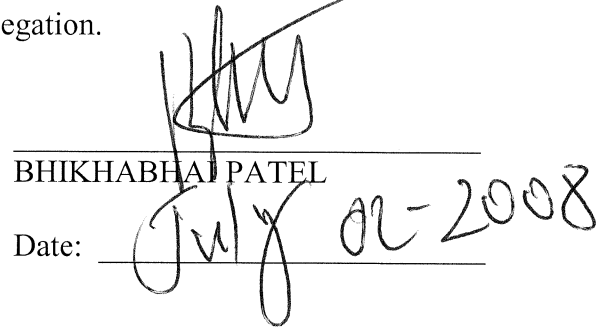 egation.
BHIKHABHAI PATEL
Date: July 02-2008